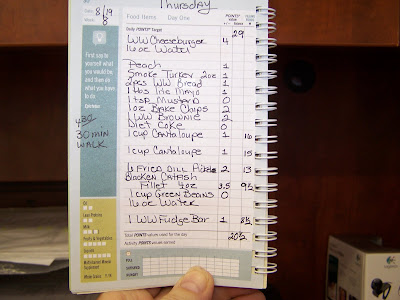 Thursday
Date 8/19
Week 8
Food Items Day One
POINTS® Value
Daily POINTS® Target 29
WW Cheeseburger 4
16 oz Water
Peach 1
Smoke Turkey 2oz 1
2pcs WW Bread 1
1 tbs lite Mayo 1
1 tsp Mustard 0
1 oz Bake Chips 2
1 WW Brownie 2
Diet Coke 0
1 cup Cantaloupe 1 16
1 cup Cantaloupe 1 15
6 Fried Dill Pickles 2 13
Blacken Catfish
Fillet 4oz 3.5 9.5
1 cup Green Beans 0
16 oz Water
1 WW Fudge Bar 1 8.5
Total POINTS® values used for the day 20.5
Activity POINTS® values earned
First say to
yourself what
you would be;
and then do
what you have
to do.
Epictetus
30 MIN
WALK
Milk